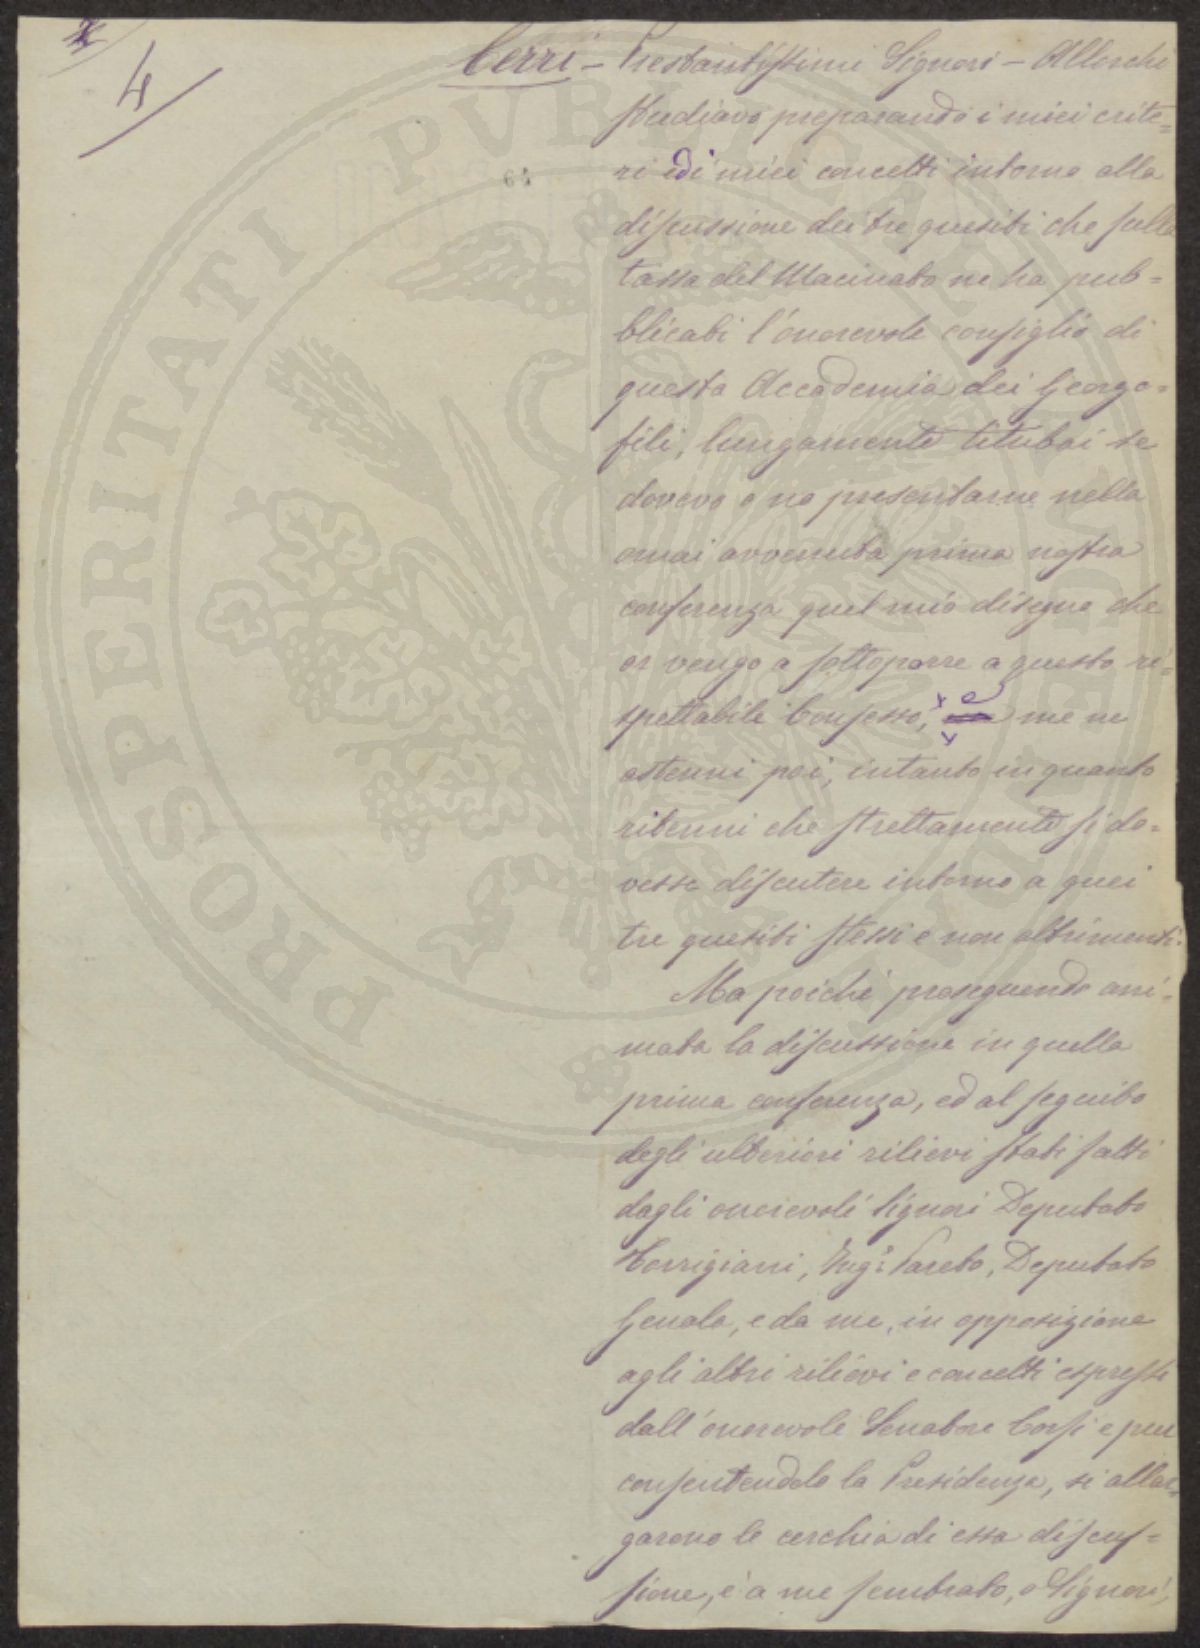 4
Cerri - Prestantissimi Signori - Allorchè
studiavo preparando i miei crite=
ri ed i miei concetti intorno alla
discussione dei tre quesiti che sulla
tassa del Macinato ne ha pub=
blicati l'onorevole consiglio di
questa Accademia dei Georgo=
fili, lungamente titubai se
dovevo o no presentarne nella
omai avvenuta prima nostra
conferenza quel mio disegno che
or vengo a sottoporre a questo ri=
spettabile Consesso, e me ne
astenni poi, intanto in quanto
ritenni che strettamente si do=
vesse discutere intorno a quei
tre quesiti stessi e non altrimenti.
Ma poichè proseguendo ani=
mata la discussione in quella
prima conferenza, ed al seguito
degli ulteriori rilievi stati fatti
dagli onorevoli Signori Deputato
Torrigiani, Ing.r Pareto, Deputato
Genala, e da me, in opposizione
agli altri rilievi e concetti espressi
dall'onorevole Senatore Corsi e pur
consentendolo la Presidenza, si allar=
garono le cerchia di essa discus=
sione, è a me sembrato, o Signori,
PROSPERITATI PVBLICAE AVGENDAE